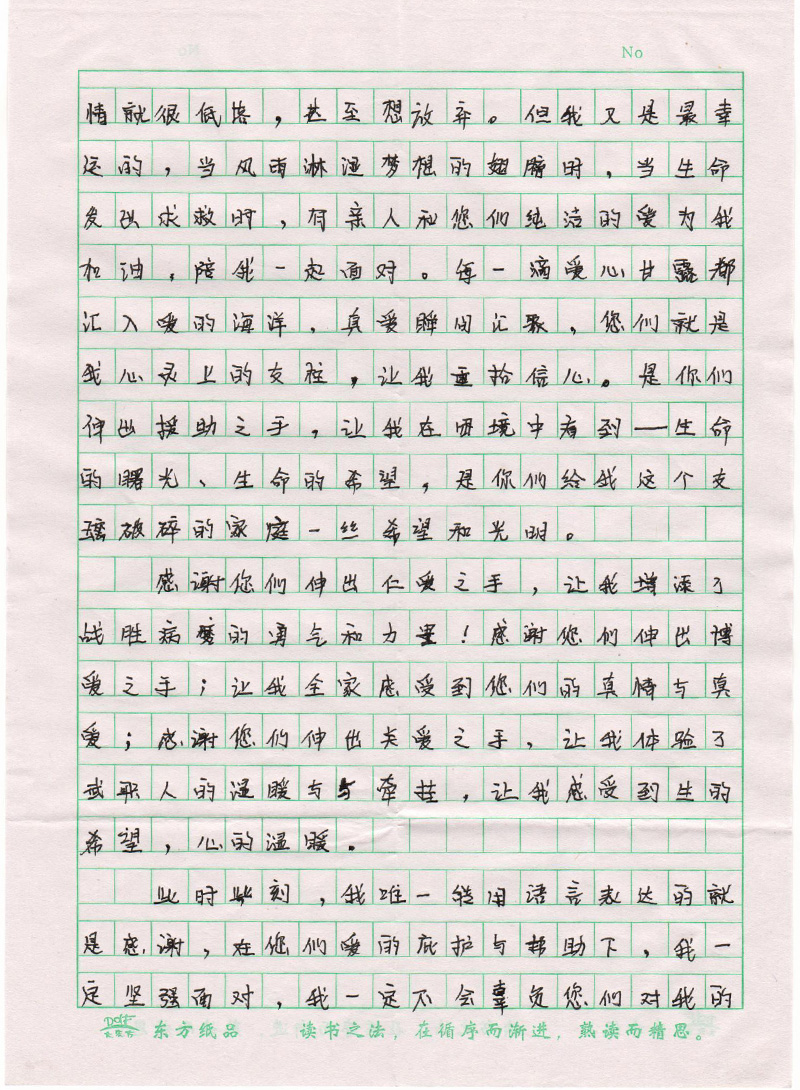 No
情就很低落，甚至想放弃。但我又是最幸
运的，当风雨淋湿梦想的翅膀时，当生命
发出求救时，有亲人和您们纯洁的爱为我
加油，陪我一起面对。每一滴爱心甘露都
汇入爱的海洋，真爱瞬间汇聚，您们就是
我心灵上的支柱，让我重拾信心。是你们
伸出援助之手，让我在困境中看到一生命
的曙光、生命的希望，是你们给我这个支
璃破碎的家庭一丝希望和光明。
感谢您们伸出仁爱之手，让我增添了
战胜病魔的勇气和力量！感谢您们伸出博
爱之手；让我全家感受到您们的真情与真
爱；感谢您们伸出关爱之手，让我体验了
武职人的温暖与与牵挂，让我感受到生的
希望，心的温暖。
此时此刻，我唯一能用语言表达的就
是感谢，在您们爱的庇护与帮助下，我一
定坚强面对，我一定不会辜负您们对我的
东方纸品 读书之法，在循序而渐进，熟读而精思。